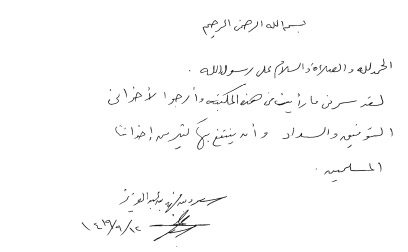 بسم الله الرحمن الرحيم
الحمد لله والصلاة والسلام على رسول الله .
لقد سرني ما رأيت في هذه المكتبة وأرجوا لأخواني
التوفيق والسداد وأن ينتفع بها كثير من إخواننا
المسلمين .
عبدالعزيز
١٤١٩/٩/١٢